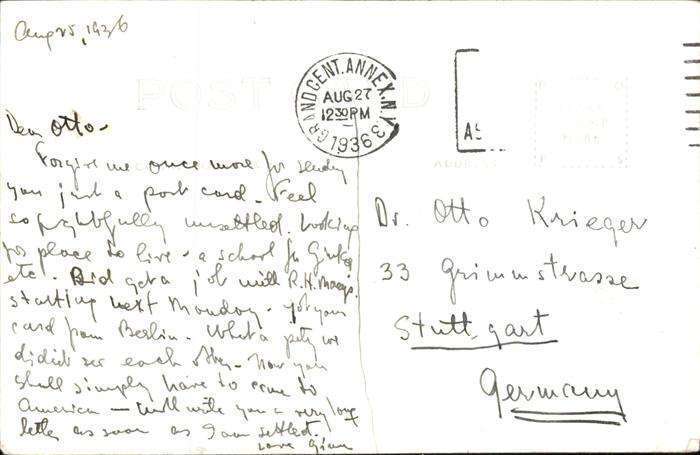 Aug 25, 1936
POST CARD
GRAND CENT. ANNEX. N.Y.
AUG 27
12 30 PM
1936
Dear Otto -
Forgive me once more for sending
you just a post card. Feel
so frightfully unsettled. Looking
for place to live - a school for
etc. Did get a job with R.H. Macy's
starting next Monday - Got your
card from Berlin. What a pity we
didn't see each other - Now you
shall simply have to come to
America - will write you a very long
letter as soon as I am settled.
Love
Dr. Otto Krieger
33 Grimmstrasse
Stuttgart
Germany